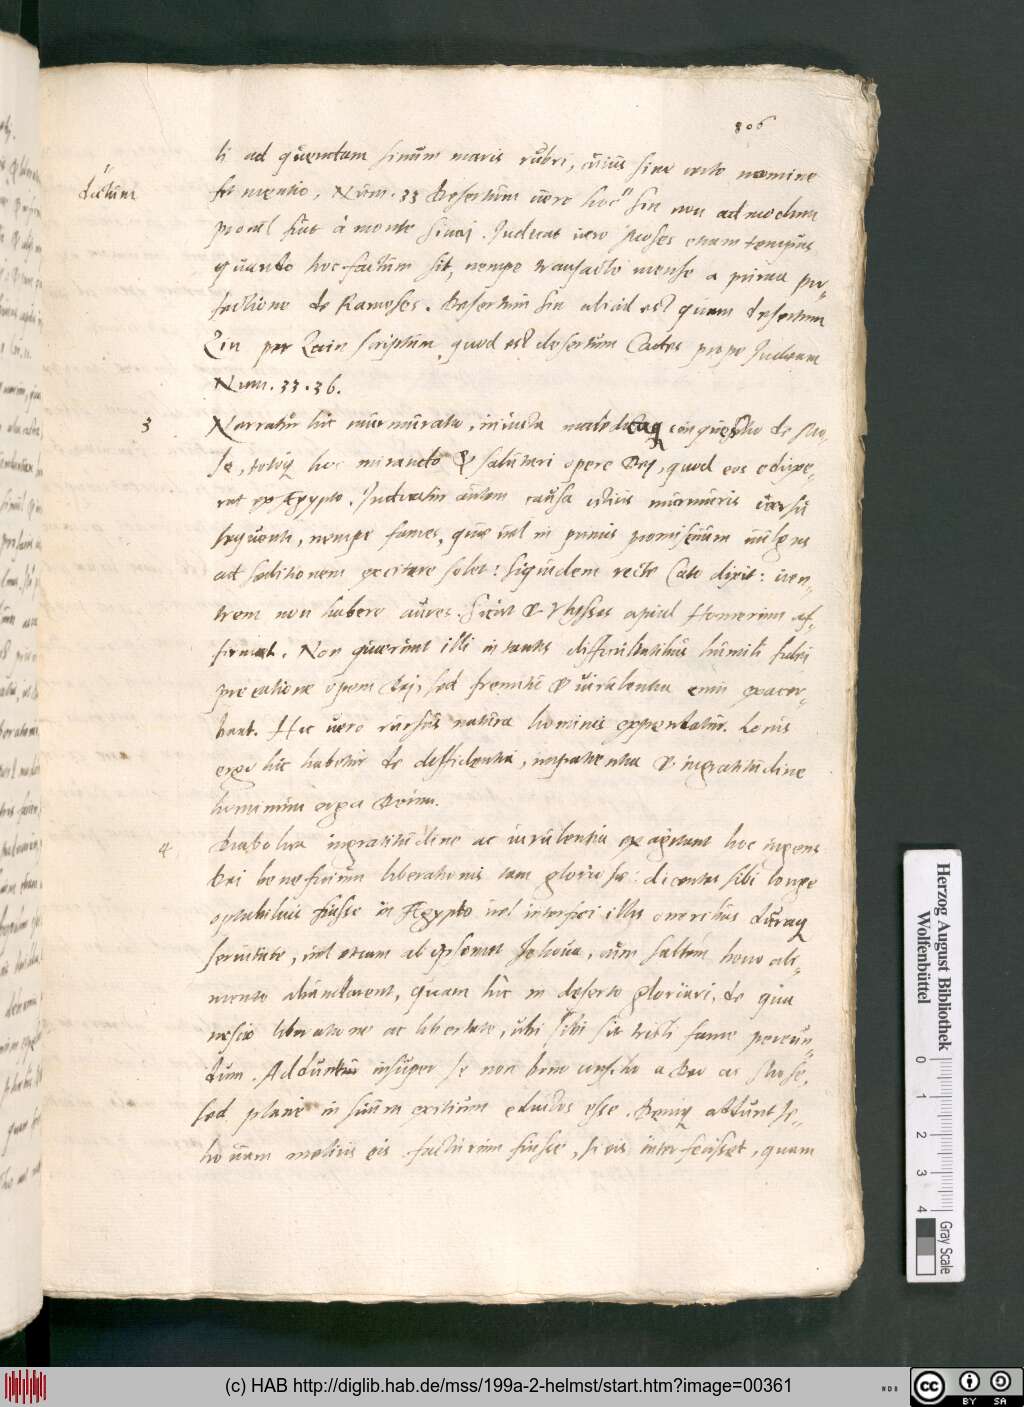 806
li ad quendam sinum maris rubri, cuius sine certo nomine
dictum
fit mentio, Num. 33 Desertum vero hoc Sin non admodum
procul fuit à monte Sinaj. Indicat vero Moses etiam tempus
quando hoc factum sit, nempe transacto mense a prima pro-
fectione de Rameses. Desertum Sin aliud est quam desertum
Zin per Zain scriptum, quod est desertum Cades prope Judeam
Num. 33. 36.
3 Narratur hic murmuratio, iniusta maledictaq conquestio de Mo-
se, totoq hoc mirando & salutari opere Dej, quod eos eduxe-
rat ex Ægypto. Indicatur autem causa istius murmuris versu
sequenti, nempe fames, quæ vel in primis promiscuum vulgus
ad seditionem excitare solet: Siquidem recte Cato dixit: ven-
trem non habere aures. Sicut & Vlysses apud Homerum af-
firmat. Non quærunt illi in tantis difficultatibus humili fidei
precatione opem Dej, sed fremitu & virulentia eum exacer-
bant. Hic vero rursus natura hominis expendatur. Locus
ergo hic habetur de diffidentia, impatientia & ingratitudine
hominum erga Deum.
4 Diabolica ingratitudine ac virulentia exagitant hoc ingens
Dei beneficium liberationis tam gloriosæ: dicentes sibi longe
optabilius fuisse in Ægypto vel interfici illis oneribus duraq
servitute, vel etiam ab ipsomet Jehova, cum saltem bono ali-
mento abundarent, quam hic in deserto gloriari, de qua
nescio liberatione ac libertate, ubi sibi sit tristi fame pereun-
dum. Addunt insuper se non bono consilio a Deo ac Mose,
sed plane in suum exitium eductos esse. Deniq addunt Je-
hovam melius eis facturum fuisse, si eos interfecisset, quam
Herzog August Bibliothek
Wolfenbüttel
0 1 2 3 4
Gray Scale
(c) HAB http://diglib.hab.de/mss/199a-2-helmst/start.htm?image=00361
cc BY SA